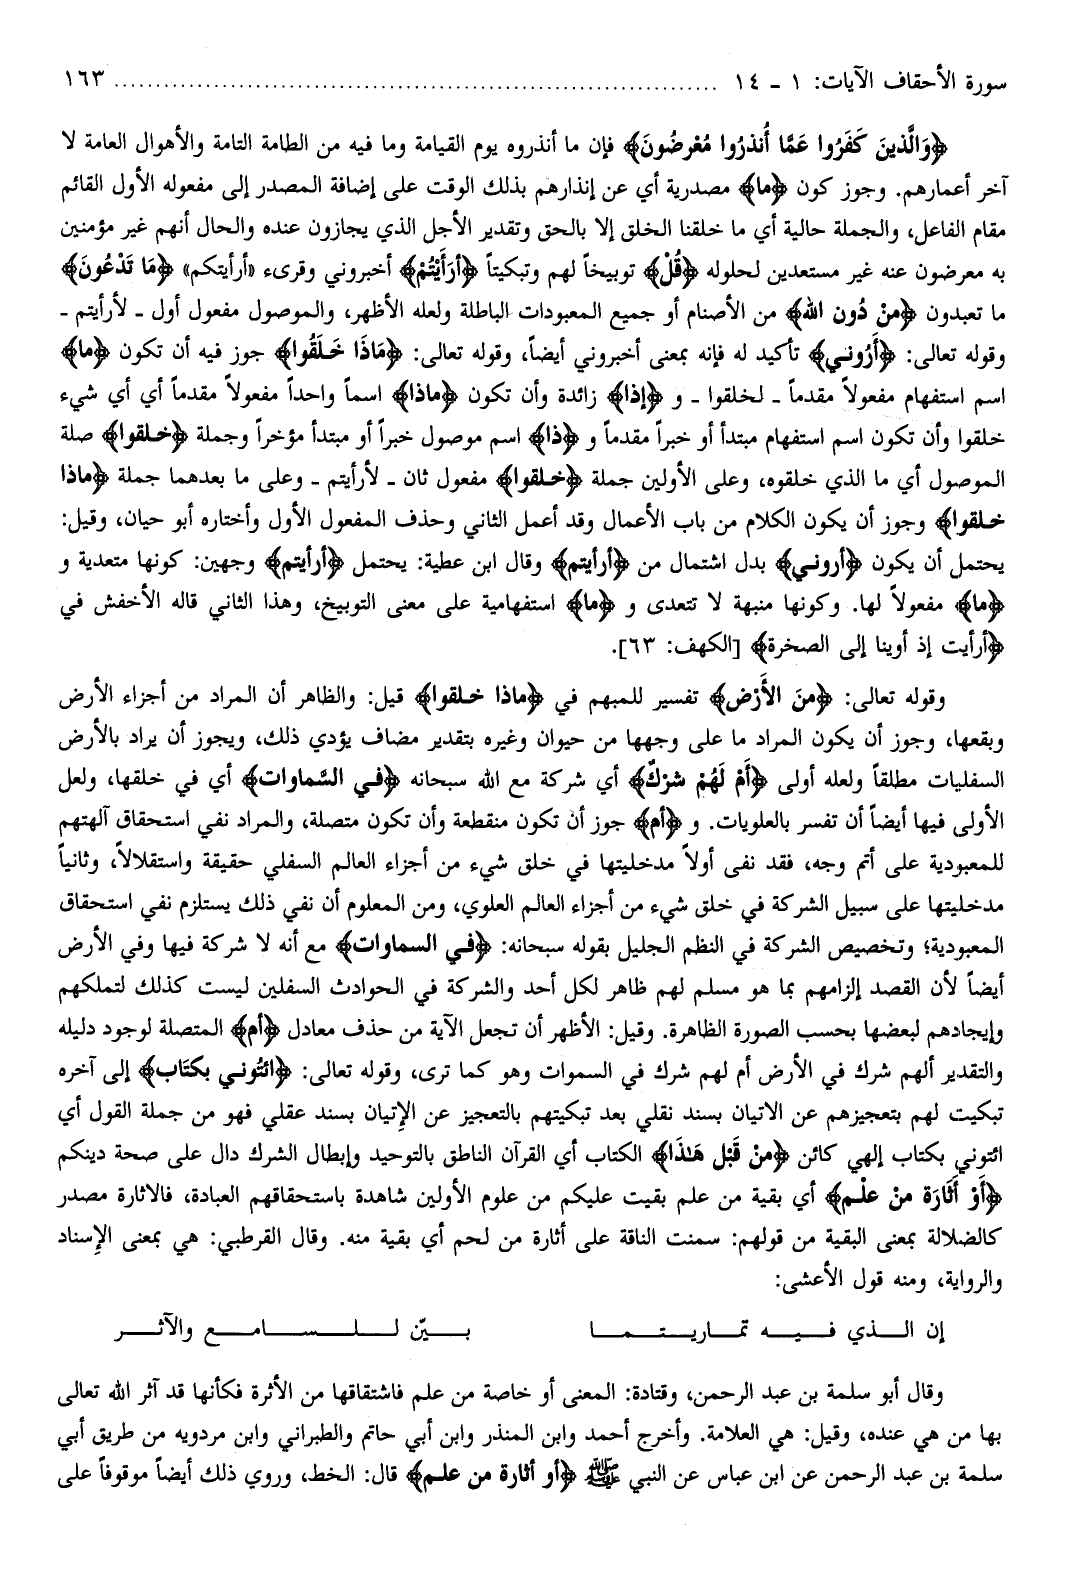 سورة الأحقاف الآيات: ١ ـ ١٤ ........................................................................... ١٦٣
﴿وَالَّذِينَ كَفَرُوا عَمَّا أُنذرُوا مُعْرضُونَ﴾ فإن ما أنذروه يوم القيامة وما فيه من الطامة التامة والأهوال العامة لا
آخر أعمارهم. وجوز كون ﴿ما﴾ مصدرية أي عن إنذارهم بذلك الوقت على إضافة المصدر إلى مفعوله الأول القائم
مقام الفاعل، والجملة حالية أي ما خلقنا الخلق إلا بالحق وتقدير الأجل الذي يجازون عنده والحال أنهم غير مؤمنين
به معرضون عنه غير مستعدين لحلوله ﴿قُلْ﴾ توبيخاً لهم وتبكيتاً ﴿أرَأَيْتُمْ﴾ أخبروني وقرىء «أرأيتكم» ﴿مَا تَدْعُونَ﴾
ما تعبدون ﴿منْ دُون الله﴾ من الأصنام أو جميع المعبودات الباطلة ولعله الأظهر، والموصول مفعول أول ـ لأرأيتم ـ
وقوله تعالى: ﴿أَرُوني﴾ تأكيد له فإنه بمعنى أخبروني أيضاً، وقوله تعالى: ﴿مَاذَا خَلَقُوا﴾ جوز فيه أن تكون ﴿ما﴾
اسم استفهام مفعولاً مقدماً ـ لخلقوا ـ و ﴿إذا﴾ زائدة وأن تكون ﴿ماذا﴾ اسماً واحداً مفعولاً مقدماً أي أي شيء
خلقوا وأن تكون اسم استفهام مبتدأ أو خبراً مقدماً و ﴿ذا﴾ اسم موصول خبراً أو مبتدأ مؤخراً وجملة ﴿خلقوا﴾ صلة
الموصول أي ما الذي خلقوه، وعلى الأولين جملة ﴿خلقوا﴾ مفعول ثان ـ لأرأيتم ـ وعلى ما بعدهما جملة ﴿ماذا
خلقوا﴾ وجوز أن يكون الكلام من باب الأعمال وقد أعمل الثاني وحذف المفعول الأول وأختاره أبو حيان، وقيل:
يحتمل أن يكون ﴿أروني﴾ بدل اشتمال من ﴿أرأيتم﴾ وقال ابن عطية: يحتمل ﴿أرأيتم﴾ وجهين: كونها متعدية و
﴿ما﴾ مفعولاً لها. وكونها منبهة لا تتعدى و ﴿ما﴾ استفهامية على معنى التوبيخ، وهذا الثاني قاله الأخفش في
﴿أرأيت إذ أوينا إلى الصخرة﴾ [الكهف: ٦٣].
وقوله تعالى: ﴿منَ الأَرْض﴾ تفسير للمبهم في ﴿ماذا خلقوا﴾ قيل: والظاهر أن المراد من أجزاء الأرض
وبقعها، وجوز أن يكون المراد ما على وجهها من حيوان وغيره بتقدير مضاف يؤدي ذلك، ويجوز أن يراد بالأرض
السفليات مطلقاً ولعله أولى ﴿أَمْ لَهُمْ شرْكٌ﴾ أي شركة مع الله سبحانه ﴿في السَّماوات﴾ أي في خلقها، ولعل
الأولى فيها أيضاً أن تفسر بالعلويات. و ﴿أم﴾ جوز أن تكون منقطعة وأن تكون متصلة، والمراد نفي استحقاق آلهتهم
للمعبودية على أتم وجه، فقد نفى أولاً مدخليتها في خلق شيء من أجزاء العالم السفلي حقيقة واستقلالاً، وثانياً
مدخليتها على سبيل الشركة في خلق شيء من أجزاء العالم العلوي، ومن المعلوم أن نفي ذلك يستلزم نفي استحقاق
المعبودية؛ وتخصيص الشركة في النظم الجليل بقوله سبحانه: ﴿في السماوات﴾ مع أنه لا شركة فيها وفي الأرض
أيضاً لأن القصد إلزامهم بما هو مسلم لهم ظاهر لكل أحد والشركة في الحوادث السفلين ليست كذلك لتملكهم
وإيجادهم لبعضها بحسب الصورة الظاهرة. وقيل: الأظهر أن تجعل الآية من حذف معادل ﴿أم﴾ المتصلة لوجود دليله
والتقدير ألهم شرك في الأرض أم لهم شرك في السموات وهو كما ترى، وقوله تعالى: ﴿ائتُوني بكتَاب﴾ إلى آخره
تبكيت لهم بتعجيزهم عن الاتيان بسند نقلي بعد تبكيتهم بالتعجيز عن الإتيان بسند عقلي فهو من جملة القول أي
ائتوني بكتاب إلهي كائن ﴿منْ قَبْل هَٰذَا﴾ الكتاب أي القرآن الناطق بالتوحيد وإبطال الشرك دال على صحة دينكم
﴿أَوْ أَثَارَة منْ علْم﴾ أي بقية من علم بقيت عليكم من علوم الأولين شاهدة باستحقاقهم العبادة، فالاثارة مصدر
كالضلالة بمعنى البقية من قولهم: سمنت الناقة على أثارة من لحم أي بقية منه. وقال القرطبي: هي بمعنى الإسناد
والرواية، ومنه قول الأعشى:
إن الذي فيه تماريتما بيّن للسامع والآثر
وقال أبو سلمة بن عبد الرحمن، وقتادة: المعنى أو خاصة من علم فاشتقاقها من الأثرة فكأنها قد آثر الله تعالى
بها من هي عنده، وقيل: هي العلامة. وأخرج أحمد وابن المنذر وابن أبي حاتم والطبراني وابن مردويه من طريق أبي
سلمة بن عبد الرحمن عن ابن عباس عن النبي ﷺ ﴿أو أثارة من علم﴾ قال: الخط، وروي ذلك أيضاً موقوفاً على